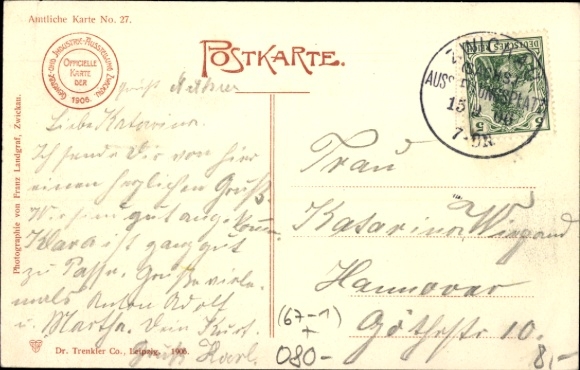 Amtliche Karte No. 27.
GEWERBE- UND INDUSTRIE-AUSSTELLUNG ZWICKAU
OFFICIELLE
KARTE
DER
1906
POSTKARTE.
ZWICKAU
AUSSTELLUNGSPLATZ
15 9 06
7-8N
DEUTSCHES REICH
5 5
Gruß
Liebe Katarina.
Ich sende Dir von hier
einen herzlichen Gruß.
Wir sind gut angekom.
Klara ist ganz gut
zu Passe. Grüße viele-
mals Anton Adolf
u. Martha. Dein Kurt.
Gruß Karl.
Frau
Katarina Wiegand
Hannover
Göthestr 10.
(67-1)
+
080-
8,-
Photographie von Franz Landgraf, Zwickau.
Dr. Trenkler Co., Leipzig. 1906.